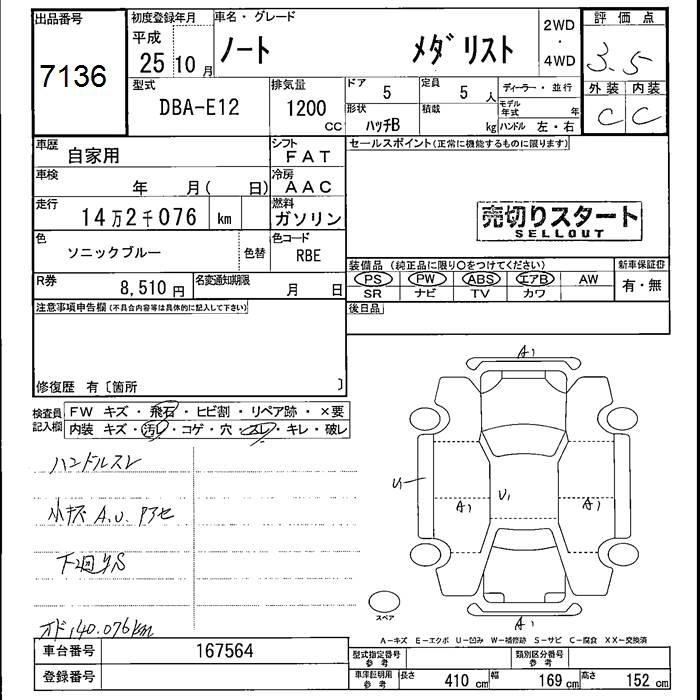 出品番号
7136
初度登録年月
平成
25 10 月
車名・グレード
ノート メダリスト
2WD
・
4WD
評価点
3.5
外装 内装
C C
型式
DBA-E12
排気量
1200
CC
ドア
5
定員
5 人
ディーラー・並行
形状
ハッチB
積載
kg
モデル年式 年
ハンドル 左・右
車歴
自家用
シフト
FAT
車検
年 月( 日)
冷房
AAC
走行
14万2千076 km
燃料
ガソリン
色
ソニックブルー
色替
色コード
RBE
R券
8,510 円
名変通知期限
月 日
セールスポイント(正常に機能するものに限ります)
売切りスタート
SELLOUT
装備品 (純正品に限り○をつけてください)
PS PW ABS エアB AW
SR ナビ TV カワ
新車保証
有・無
後日品
注意事項申告欄(不具合内容等は具体的に記入して下さい)
修復歴 有〔箇所 〕
検査員
記入欄
FW キズ・飛石・ヒビ割・リペア跡・×要
内装 キズ・汚レ・コゲ・穴・スレ・キレ・破レ
ハンドルスレ
小キズ A.U.
下回りS
オド140.076km
A1
U1
A1
U1
A1
A1
スペア
A-キズ E-エクボ U-凹み W-補修跡 S-サビ C-腐食 XX-交換済
車台番号
167564
登録番号
型式指定番号
参考
類別区分番号
参考
車庫証明用
参考
長さ 410 cm 幅 169 cm 高さ 152 cm